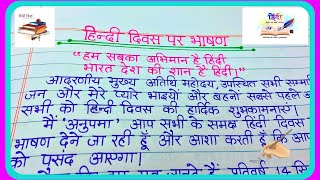 हिन्दी दिवस पर भाषण
"हम सबका अभिमान है हिंदी
भारत देश की शान है हिंदी।"
आदरणीय मुख्य अतिथि महोदय, उपस्थित सभी सम्मा
जन और मेरे प्यारे भाइयों और बहनों सबसे पहले आ
सभी को हिन्दी दिवस की हार्दिक शुभकामनाएं।
मैं 'अनुपमा' आप सभी के समक्ष हिन्दी दिवस
भाषण देने जा रही हूँ और आशा करती हूँ कि आप
को पसंद आएगा।
प्रतिवर्ष 14 सि